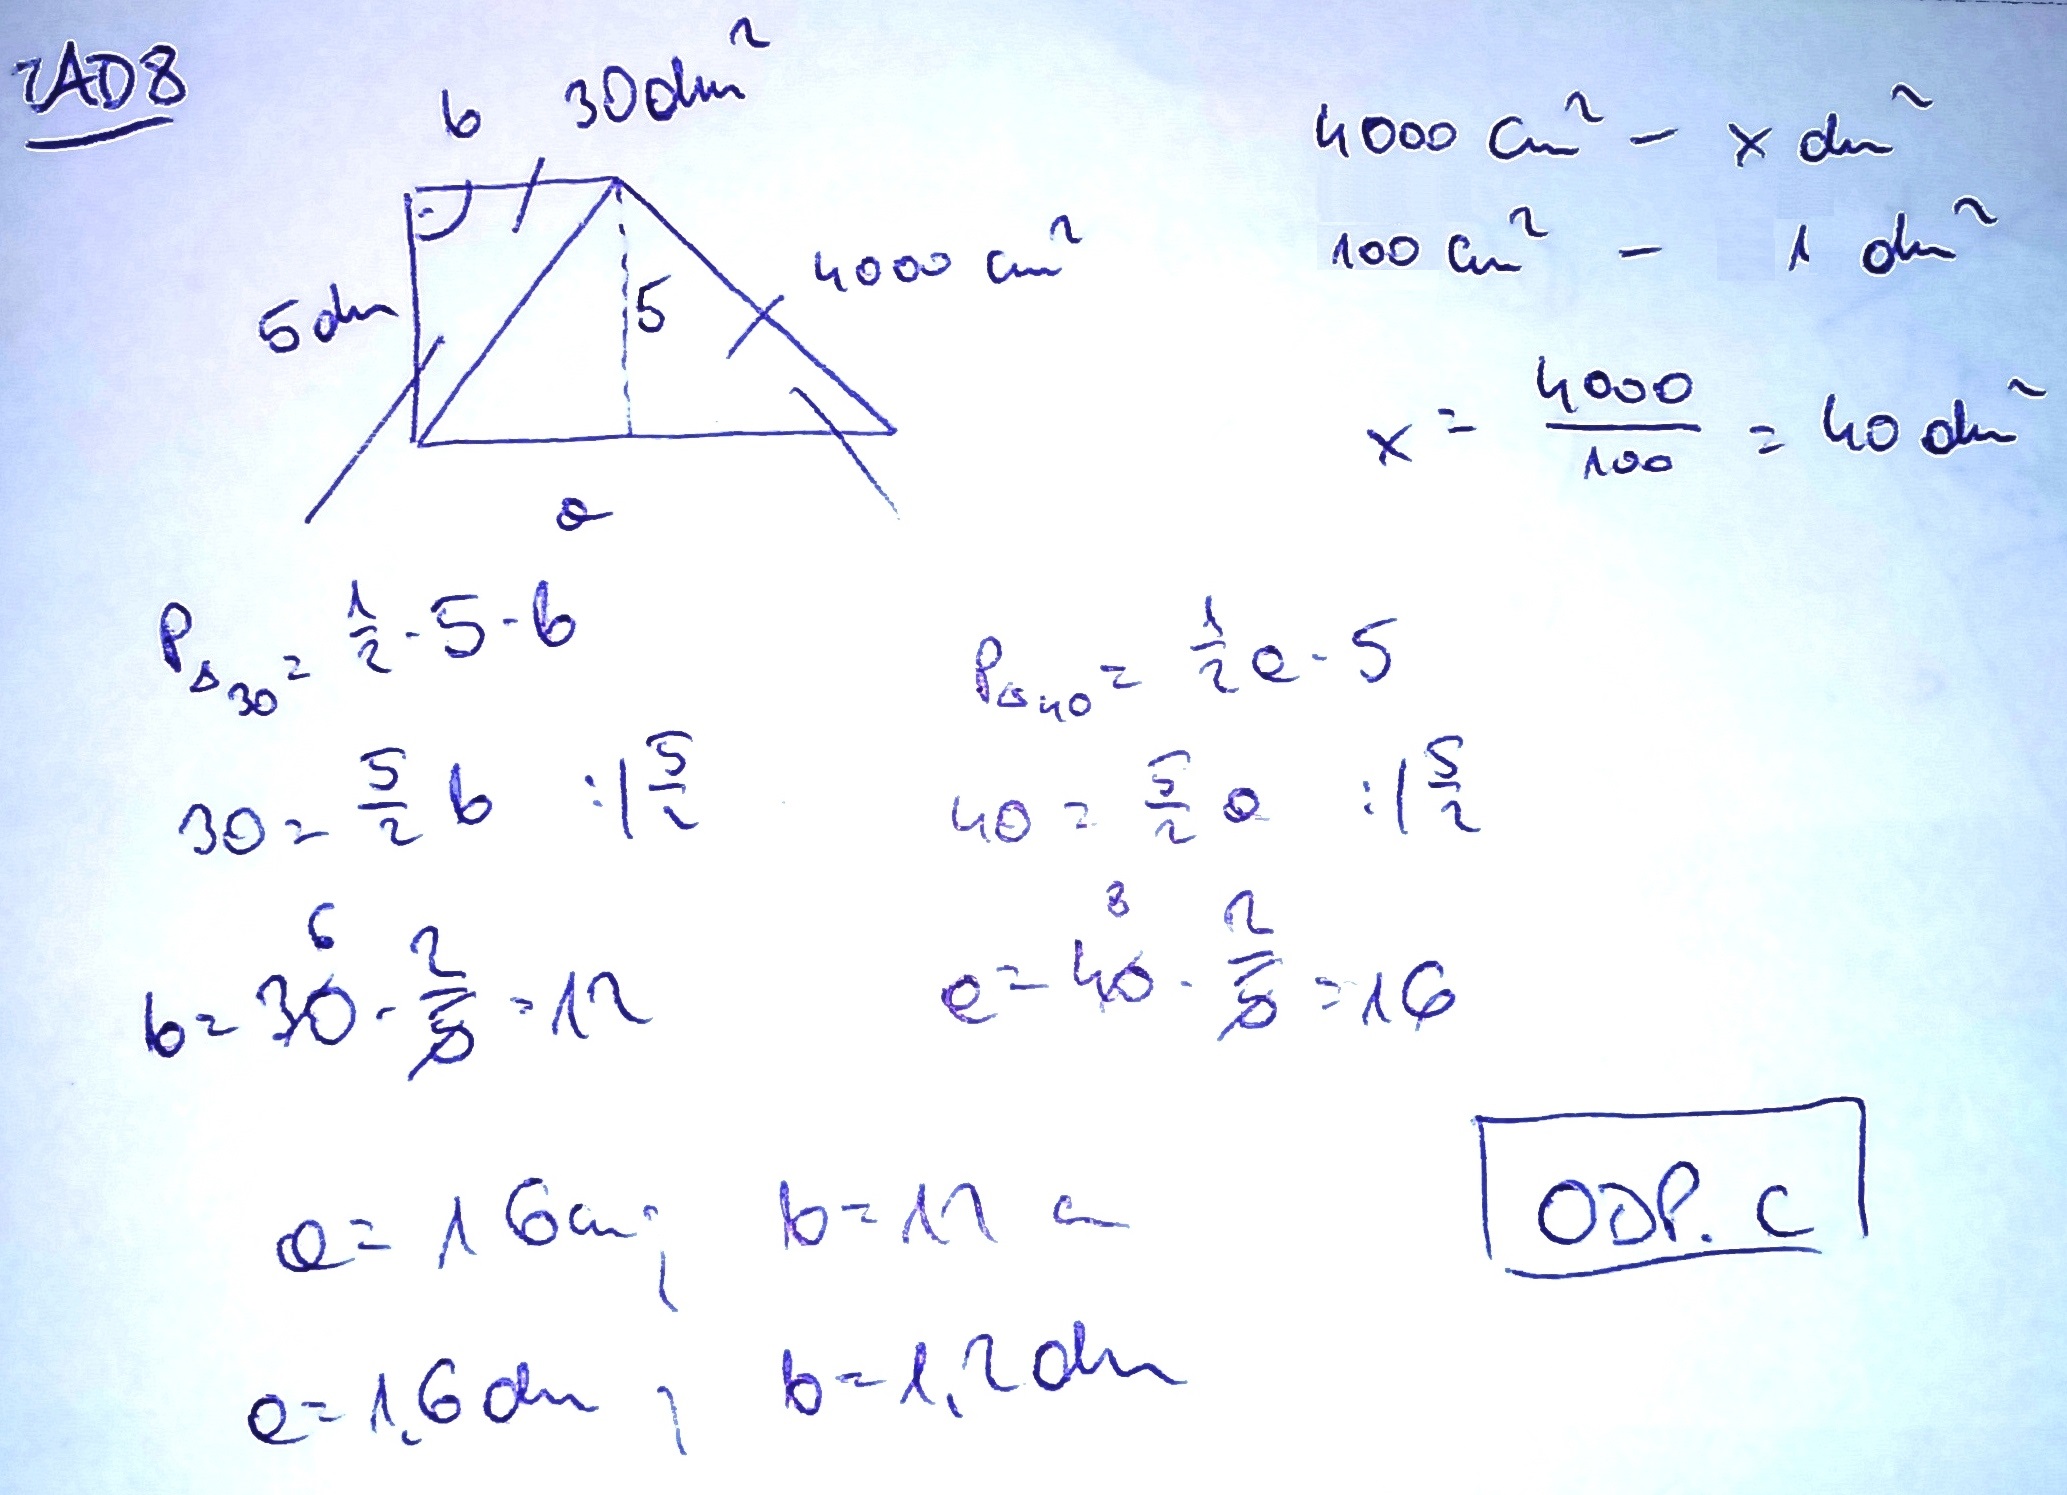 ZAD8
b 30dm²
5dm
5
4000 cm²
a
4000 cm² - x dm²
100 cm² - 1 dm²
x = 4000/100 = 40 dm²
P△30 = 1/2 · 5 · b
30 = 5/2 b :| 5/2
b = 30 · 2/5 = 12
6
P△40 = 1/2 a · 5
40 = 5/2 a :| 5/2
a = 40 · 2/5 = 16
8
a = 16cm; b = 12 cm
a = 1,6 dm; b = 1,2 dm
ODP. C